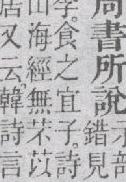 周書所說
示部
錯見
李。食之宜子。詩
山海經無芣苡
居又云韓詩言